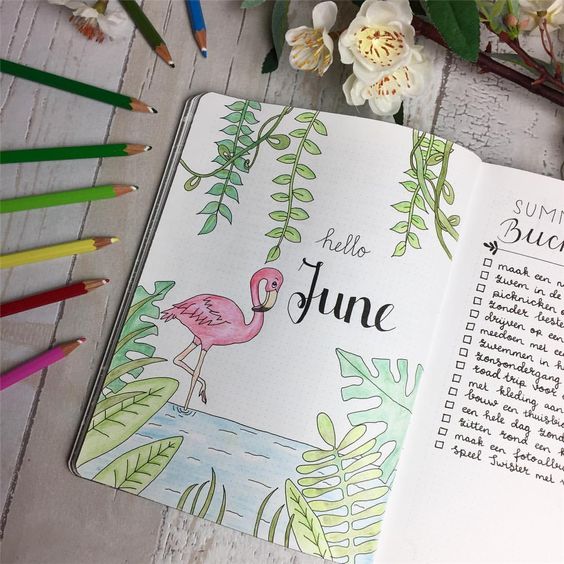 hello
June
maak een
zwem in de
picknicken
zonder
drijven op een
meedoen met
zwemmen in h
zonsondergang
road trip voor
met kleding aan
bouw een
een hele dag
zitten rond een k
maak een fotoalb
speel Twister met